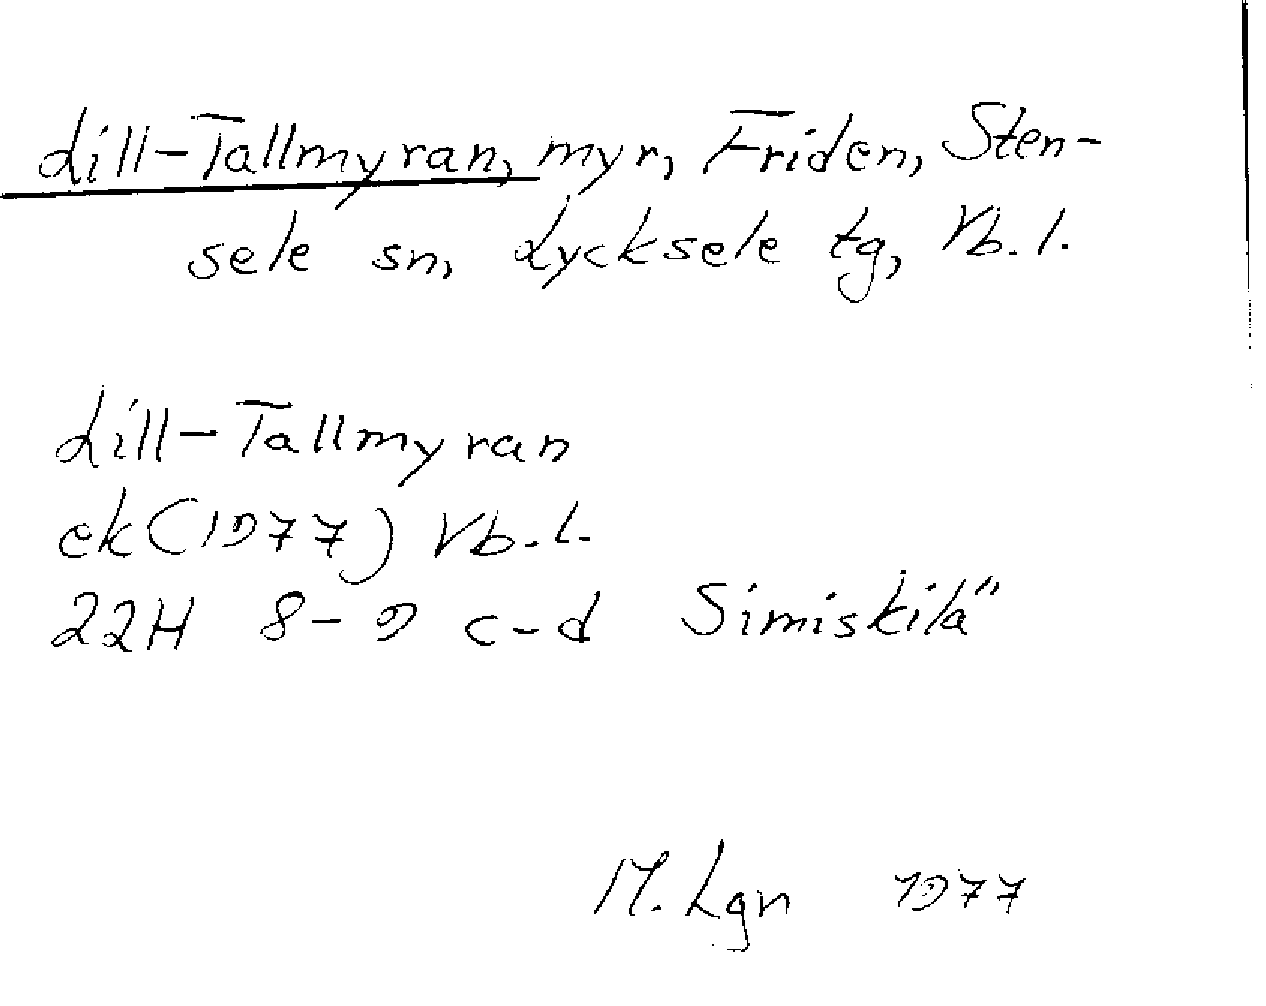 Lill-Tallmyran, myr, Friden, Sten-
sele sn, Lycksele tg, Vb. l.
Lill-Tallmyran
ek (1977) Vb. l.
22H 8-9 c-d Simiskilä
M. Lgn 1977